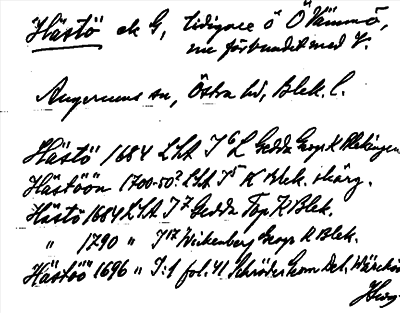 Hästö ek G, tidigare ö Ö Tämmö,
nu förbundet med V.
Augerums sn, Östra hd, Blek. l.
Hästö 1684 LHA I 6 L Gedda Geogr K Blekingen
Hästöön 1700-50? LHA I 5 K Blek. skärg.
Hästö 1684 LHA I 7 Gedda Top K Blek.
" 1790 " I 17 Wickenberg Geogr K Blek.
Hästöö 1696 " I:1 fol. 41 Schröder Geom Del.